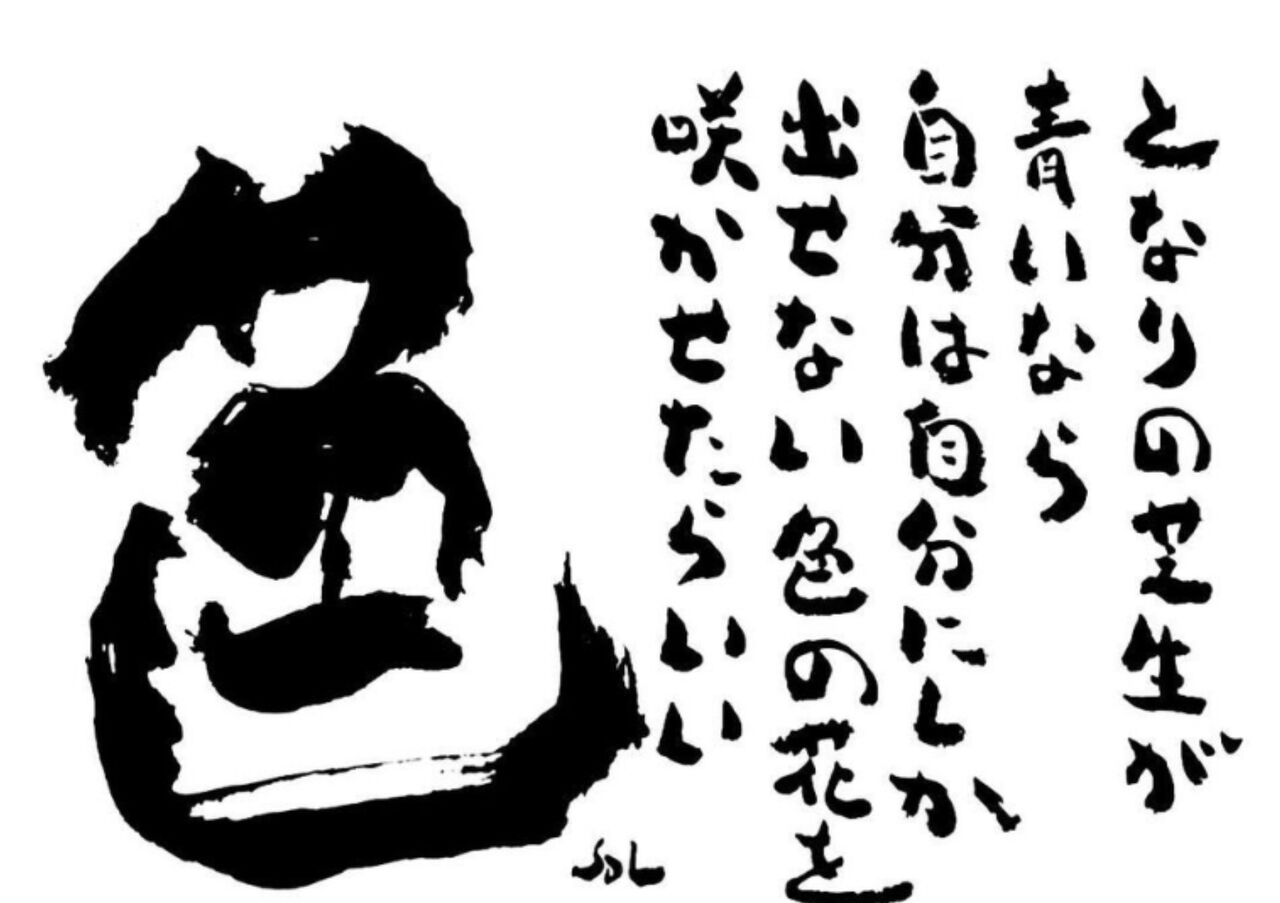 となりの芝生が
青いなら
自分は自分にしか
出せない色の花を
咲かせたらいい
色
SOL